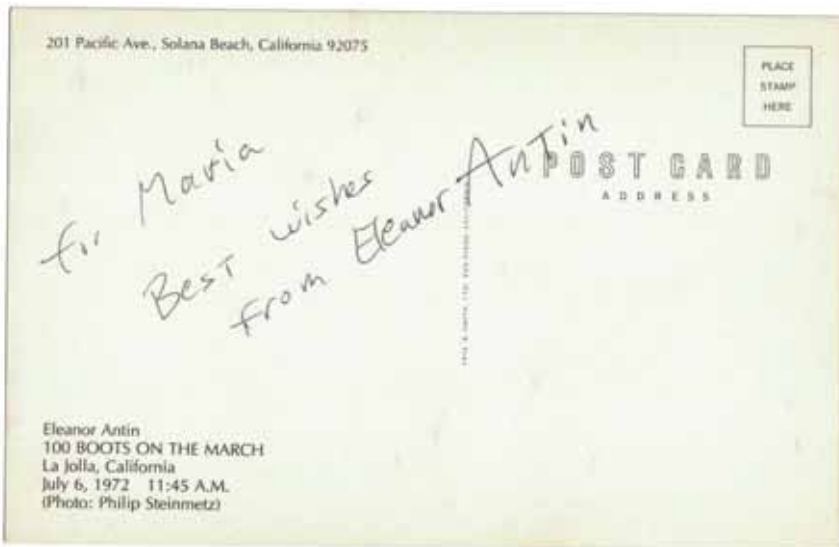 201 Pacific Ave., Solana Beach, California 92075
PLACE
STAMP
HERE
for Maria
Best wishes
from Eleanor Antin
POST CARD
ADDRESS
Eleanor Antin
100 BOOTS ON THE MARCH
La Jolla, California
July 6, 1972 11:45 A.M.
(Photo: Philip Steinmetz)